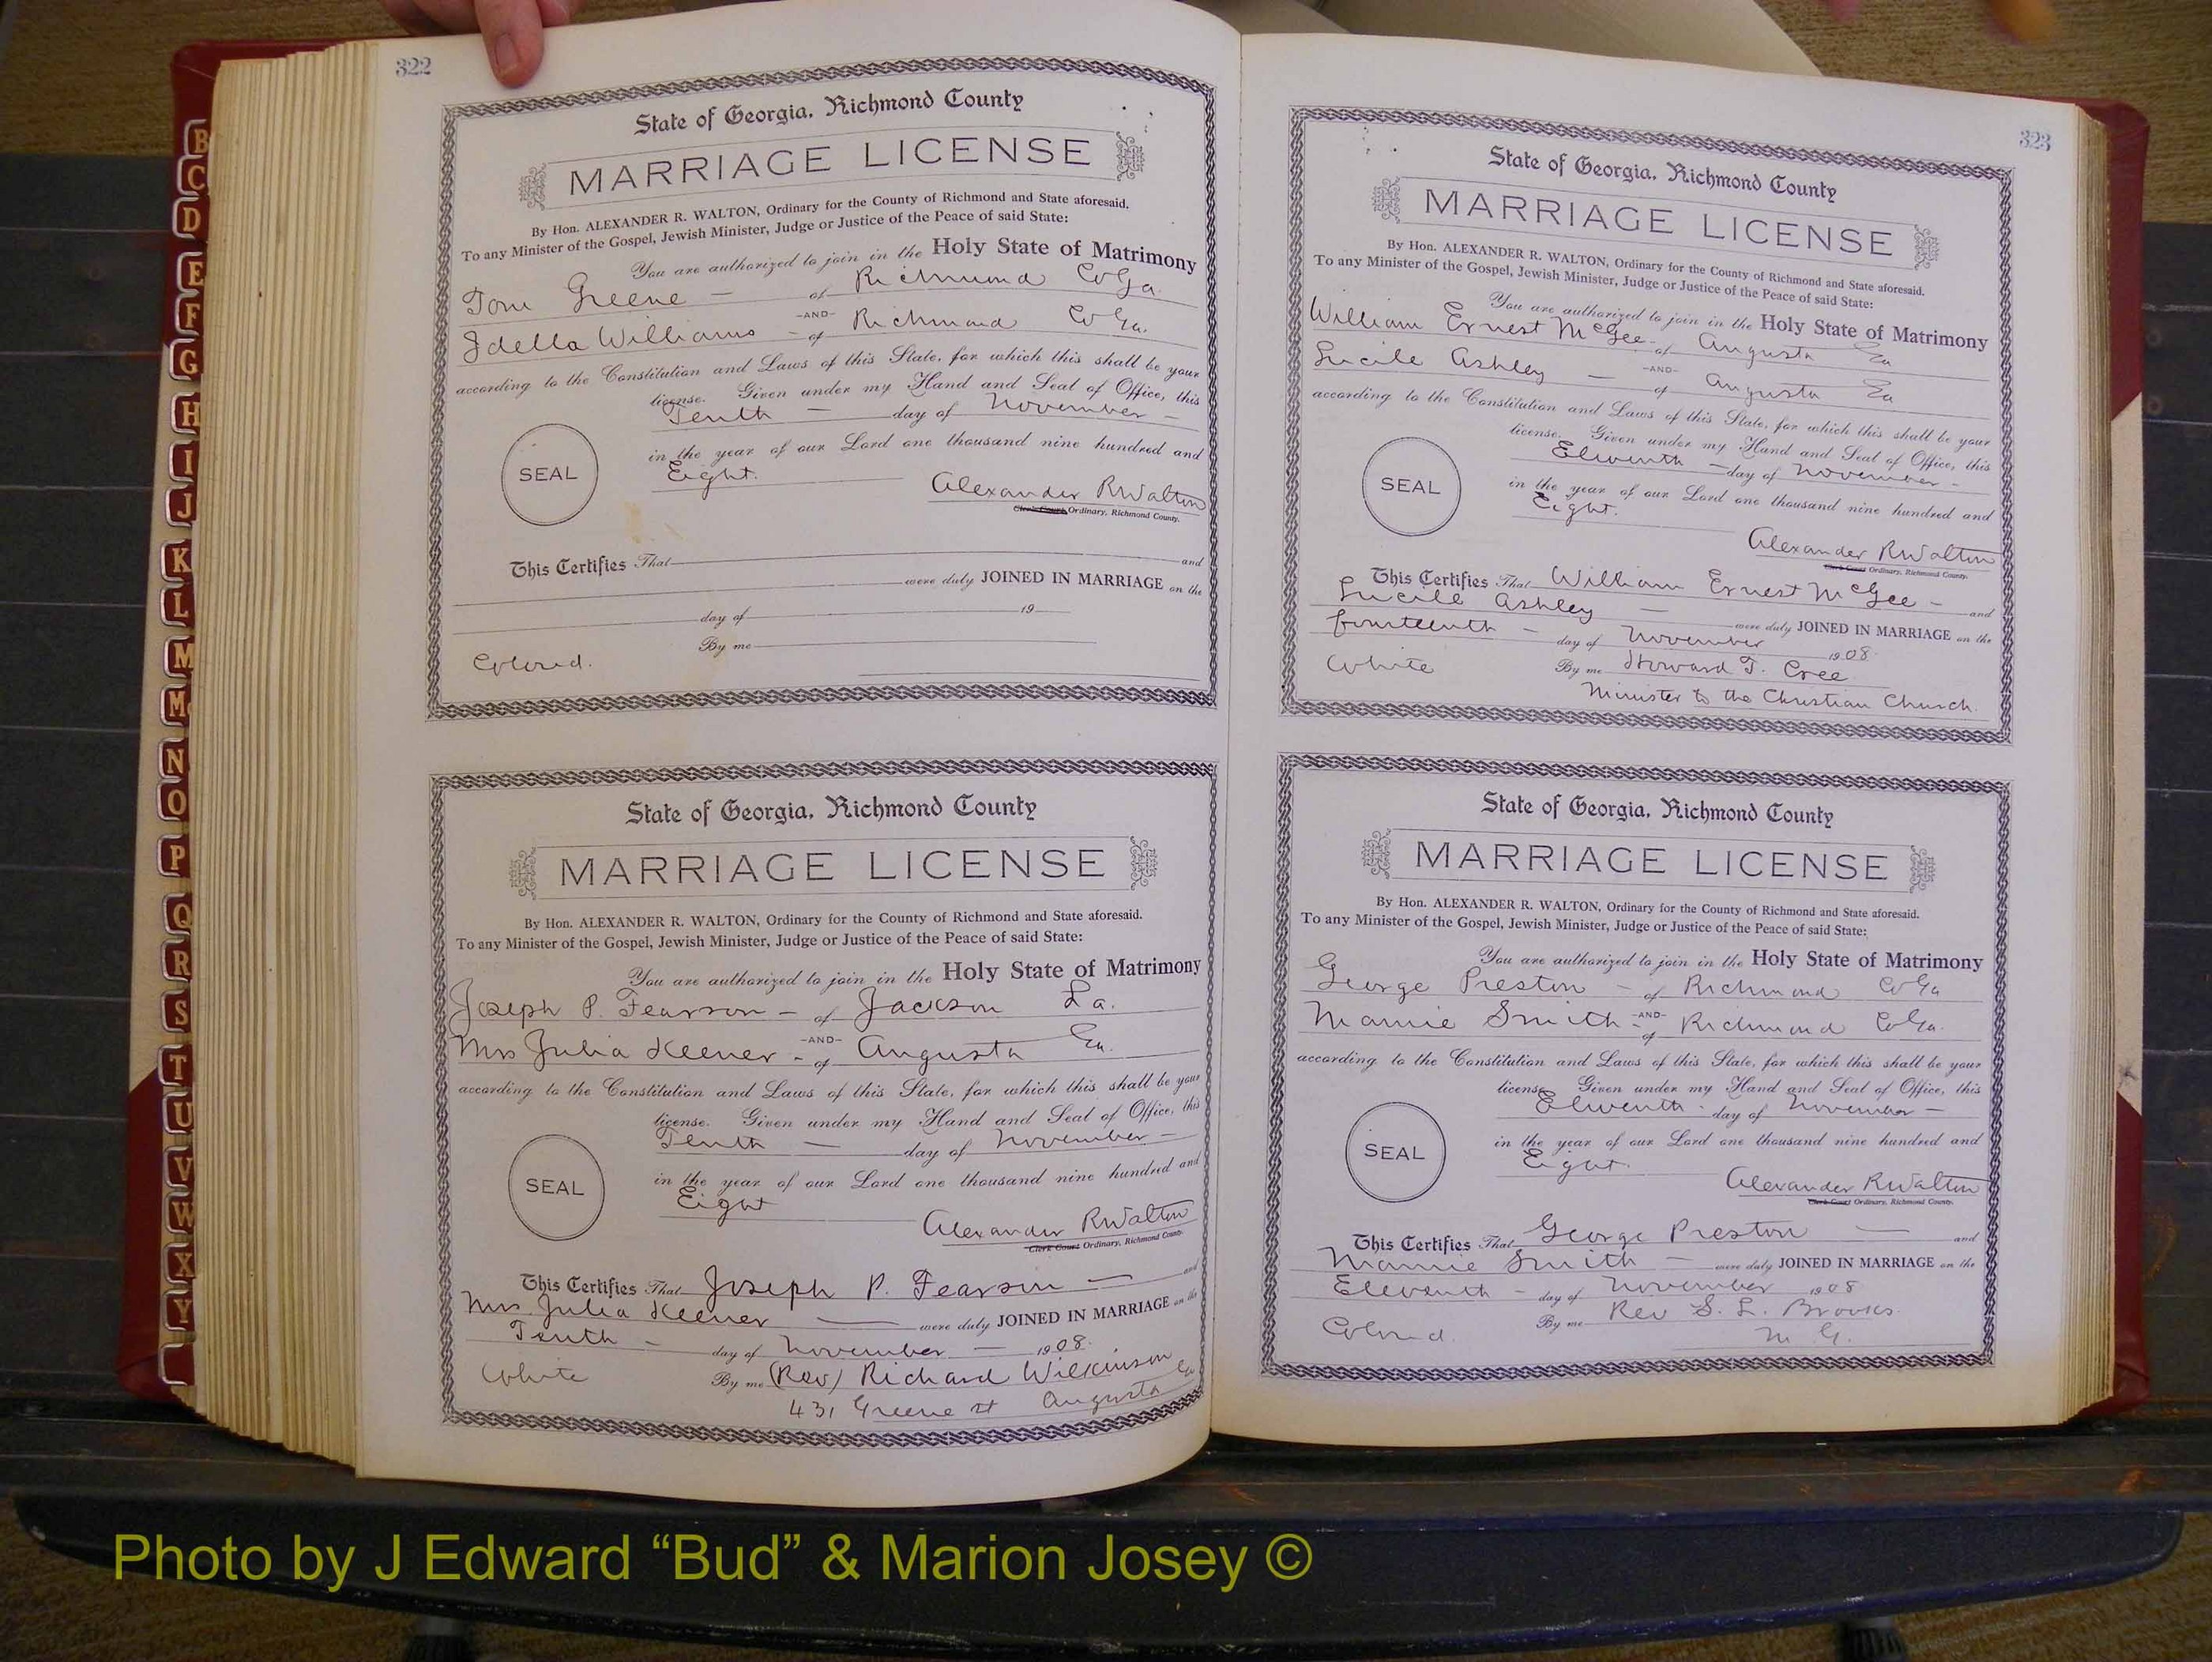 322
State of Georgia, Richmond County
MARRIAGE LICENSE
By Hon. ALEXANDER R. WALTON, Ordinary for the County of Richmond and State aforesaid.
To any Minister of the Gospel, Jewish Minister, Judge or Justice of the Peace of said State:
You are authorized to join in the Holy State of Matrimony
Tom Greene - of Richmond Co Ga.
-AND-
Idella Williams - of Richmond Co Ga.
according to the Constitution and Laws of this State, for which this shall be your
license. Given under my Hand and Seal of Office, this
Tenth - day of November -
SEAL
in the year of our Lord one thousand nine hundred and
Eight.
Alexander R Walton
Clerk Court Ordinary, Richmond County.
This Certifies That and
were duly JOINED IN MARRIAGE on the
day of 19
By me
Colored.
State of Georgia, Richmond County
MARRIAGE LICENSE
By Hon. ALEXANDER R. WALTON, Ordinary for the County of Richmond and State aforesaid.
To any Minister of the Gospel, Jewish Minister, Judge or Justice of the Peace of said State:
You are authorized to join in the Holy State of Matrimony
Joseph P. Fearson - of Jackson La.
-AND-
Mrs Julia Keener - of Augusta Ga.
according to the Constitution and Laws of this State, for which this shall be your
license. Given under my Hand and Seal of Office, this
Tenth - day of November -
SEAL
in the year of our Lord one thousand nine hundred and
Eight
Alexander R Walton
Clerk Court Ordinary, Richmond County.
This Certifies That Joseph P. Fearson - and
Mrs. Julia Keener - were duly JOINED IN MARRIAGE on the
Tenth - day of November - 1908.
White By me (Rev) Richard Wilkinson
431 Greene st Augusta Ga
323
State of Georgia, Richmond County
MARRIAGE LICENSE
By Hon. ALEXANDER R. WALTON, Ordinary for the County of Richmond and State aforesaid.
To any Minister of the Gospel, Jewish Minister, Judge or Justice of the Peace of said State:
You are authorized to join in the Holy State of Matrimony
William Ernest McGee - of Augusta Ga
-AND-
Lucile Ashley - of Augusta Ga
according to the Constitution and Laws of this State, for which this shall be your
license. Given under my Hand and Seal of Office, this
Eleventh - day of November -
SEAL
in the year of our Lord one thousand nine hundred and
Eight.
Alexander R Walton
Clerk Court Ordinary, Richmond County.
This Certifies That William Ernest McGee - and
Lucile Ashley - were duly JOINED IN MARRIAGE on the
fourteenth - day of November 1908.
White By me Howard T. Cree
Minister to the Christian Church.
State of Georgia, Richmond County
MARRIAGE LICENSE
By Hon. ALEXANDER R. WALTON, Ordinary for the County of Richmond and State aforesaid.
To any Minister of the Gospel, Jewish Minister, Judge or Justice of the Peace of said State:
You are authorized to join in the Holy State of Matrimony
George Preston - of Richmond Co Ga
-AND-
Mamie Smith - of Richmond Co Ga.
according to the Constitution and Laws of this State, for which this shall be your
license. Given under my Hand and Seal of Office, this
Eleventh - day of November -
SEAL
in the year of our Lord one thousand nine hundred and
Eight.
Alexander R Walton
Clerk Court Ordinary, Richmond County.
This Certifies That George Preston - and
Mamie Smith - were duly JOINED IN MARRIAGE on the
Eleventh - day of November 1908
Colored. By me Rev S. L. Brooks
M. G.
B
C
D
E
F
G
H
I
J
K
L
M
Mc
N
O
P
Q
R
S
T
U
V
W
X
Y
Photo by J Edward “Bud” & Marion Josey ©